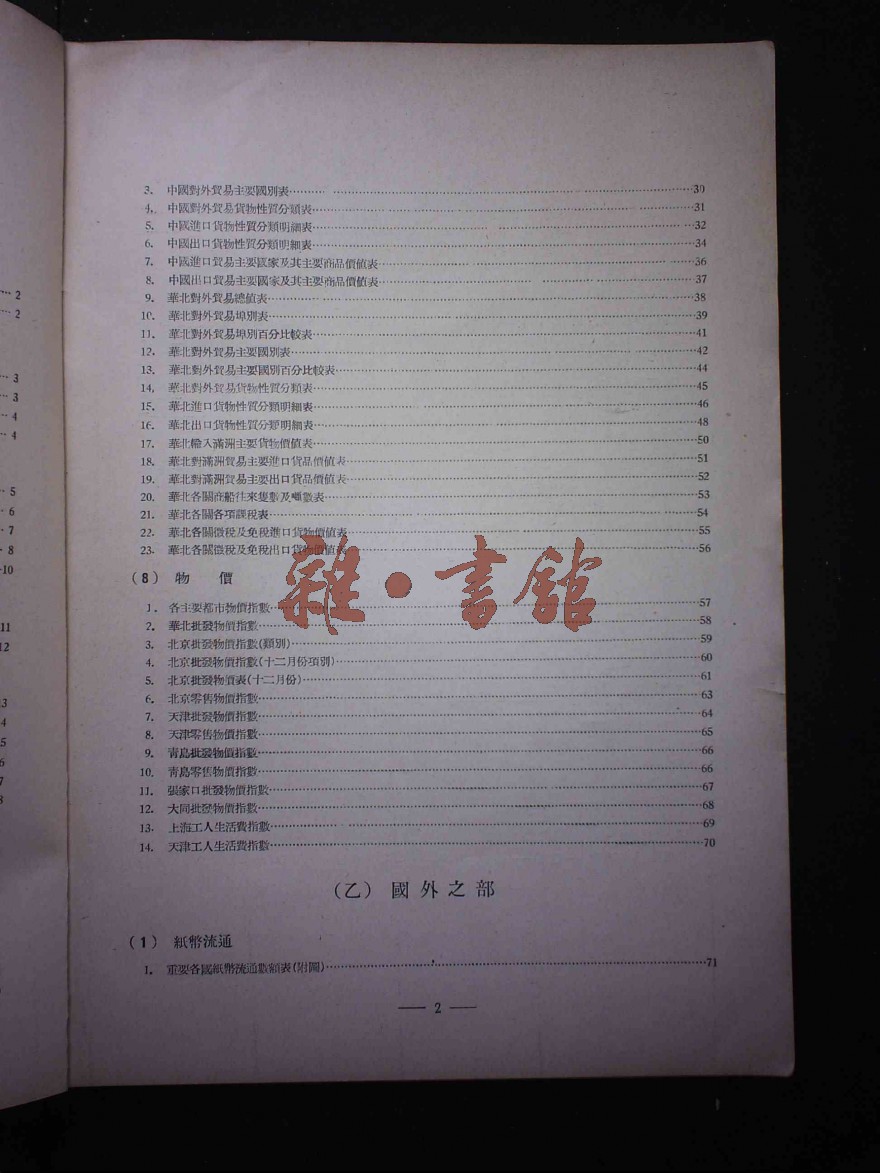 3. 中國對外貿易主要國別表……30
4. 中國對外貿易貨物性質分類表……31
5. 中國進口貨物性質分類明細表……32
6. 中國出口貨物性質分類明細表……34
7. 中國進口貿易主要國家及其主要商品價值表……36
8. 中國出口貿易主要國家及其主要商品價值表……37
9. 華北對外貿易總值表……38
10. 華北對外貿易埠別表……39
11. 華北對外貿易埠別百分比較表……41
12. 華北對外貿易主要國別表……42
13. 華北對外貿易主要國別百分比較表……44
14. 華北對外貿易貨物性質分類表……45
15. 華北進口貨物性質分類明細表……46
16. 華北出口貨物性質分類明細表……48
17. 華北輸入滿洲主要貨物價值表……50
18. 華北對滿洲貿易主要進口貨品價值表……51
19. 華北對滿洲貿易主要出口貨品價值表……52
20. 華北各關商船往來隻數及噸數表……53
21. 華北各關各項課稅表……54
22. 華北各關徵稅及免稅進口貨物價值表……55
23. 華北各關徵稅及免稅出口貨物價值表……56
(8) 物 價
1. 各主要都市物價指數……57
2. 華北批發物價指數……58
3. 北京批發物價指數(類別)……59
4. 北京批發物價指數(十二月份項別)……60
5. 北京批發物價表(十二月份)……61
6. 北京零售物價指數……63
7. 天津批發物價指數……64
8. 天津零售物價指數……65
9. 青島批發物價指數……66
10. 青島零售物價指數……66
11. 張家口批發物價指數……67
12. 大同批發物價指數……68
13. 上海工人生活費指數……69
14. 天津工人生活費指數……70
(乙) 國外之部
(1) 紙幣流通
1. 重要各國紙幣流通數額表(附圖)……71
— 2 —
雜·書館